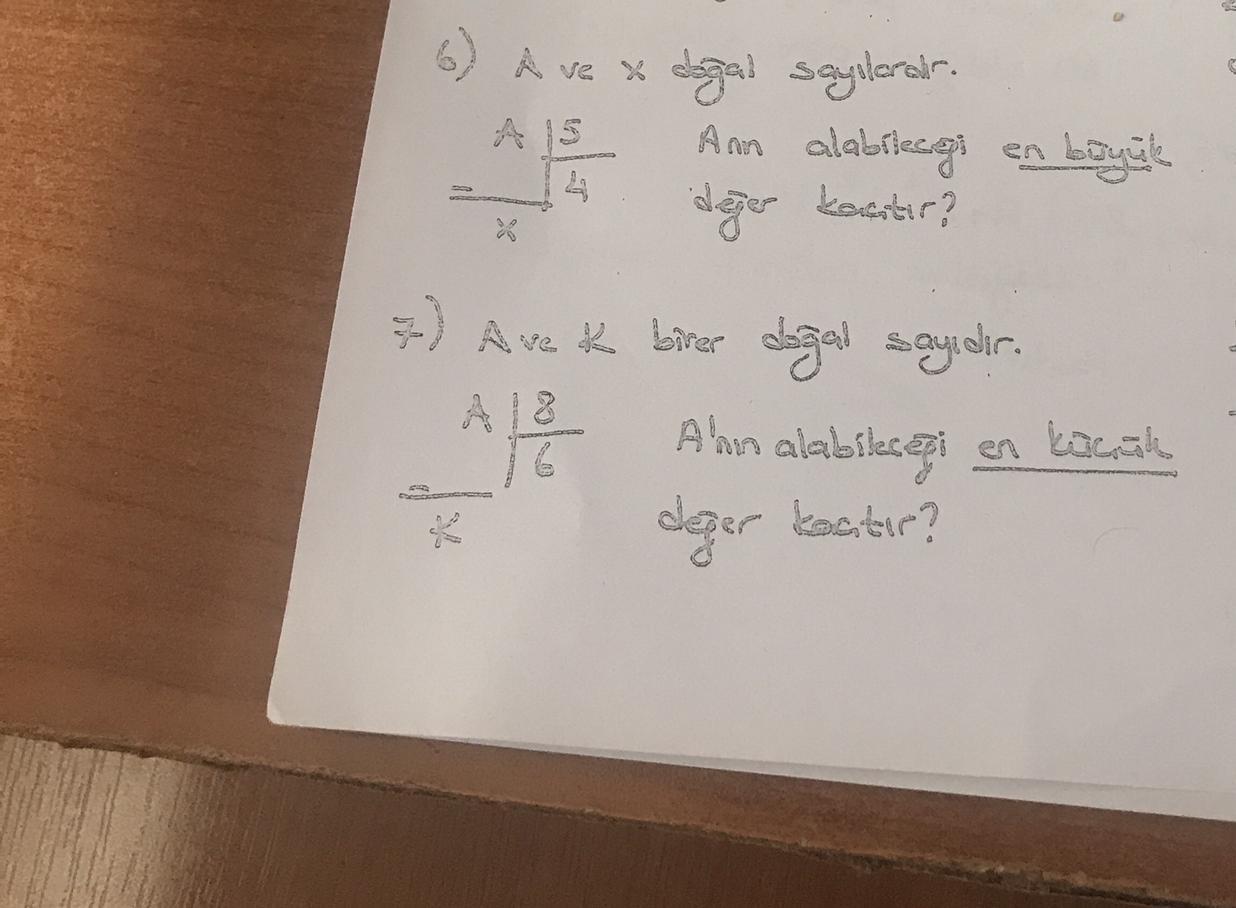 6) A ve x doğal sayılardır.
A | 5
4
x
Anın alabileceği en büyük
değer kaçtır?
7) A ve K birer doğal sayıdır.
A | 8
6
K
A'nın alabileceği en küçük
değer kaçtır?